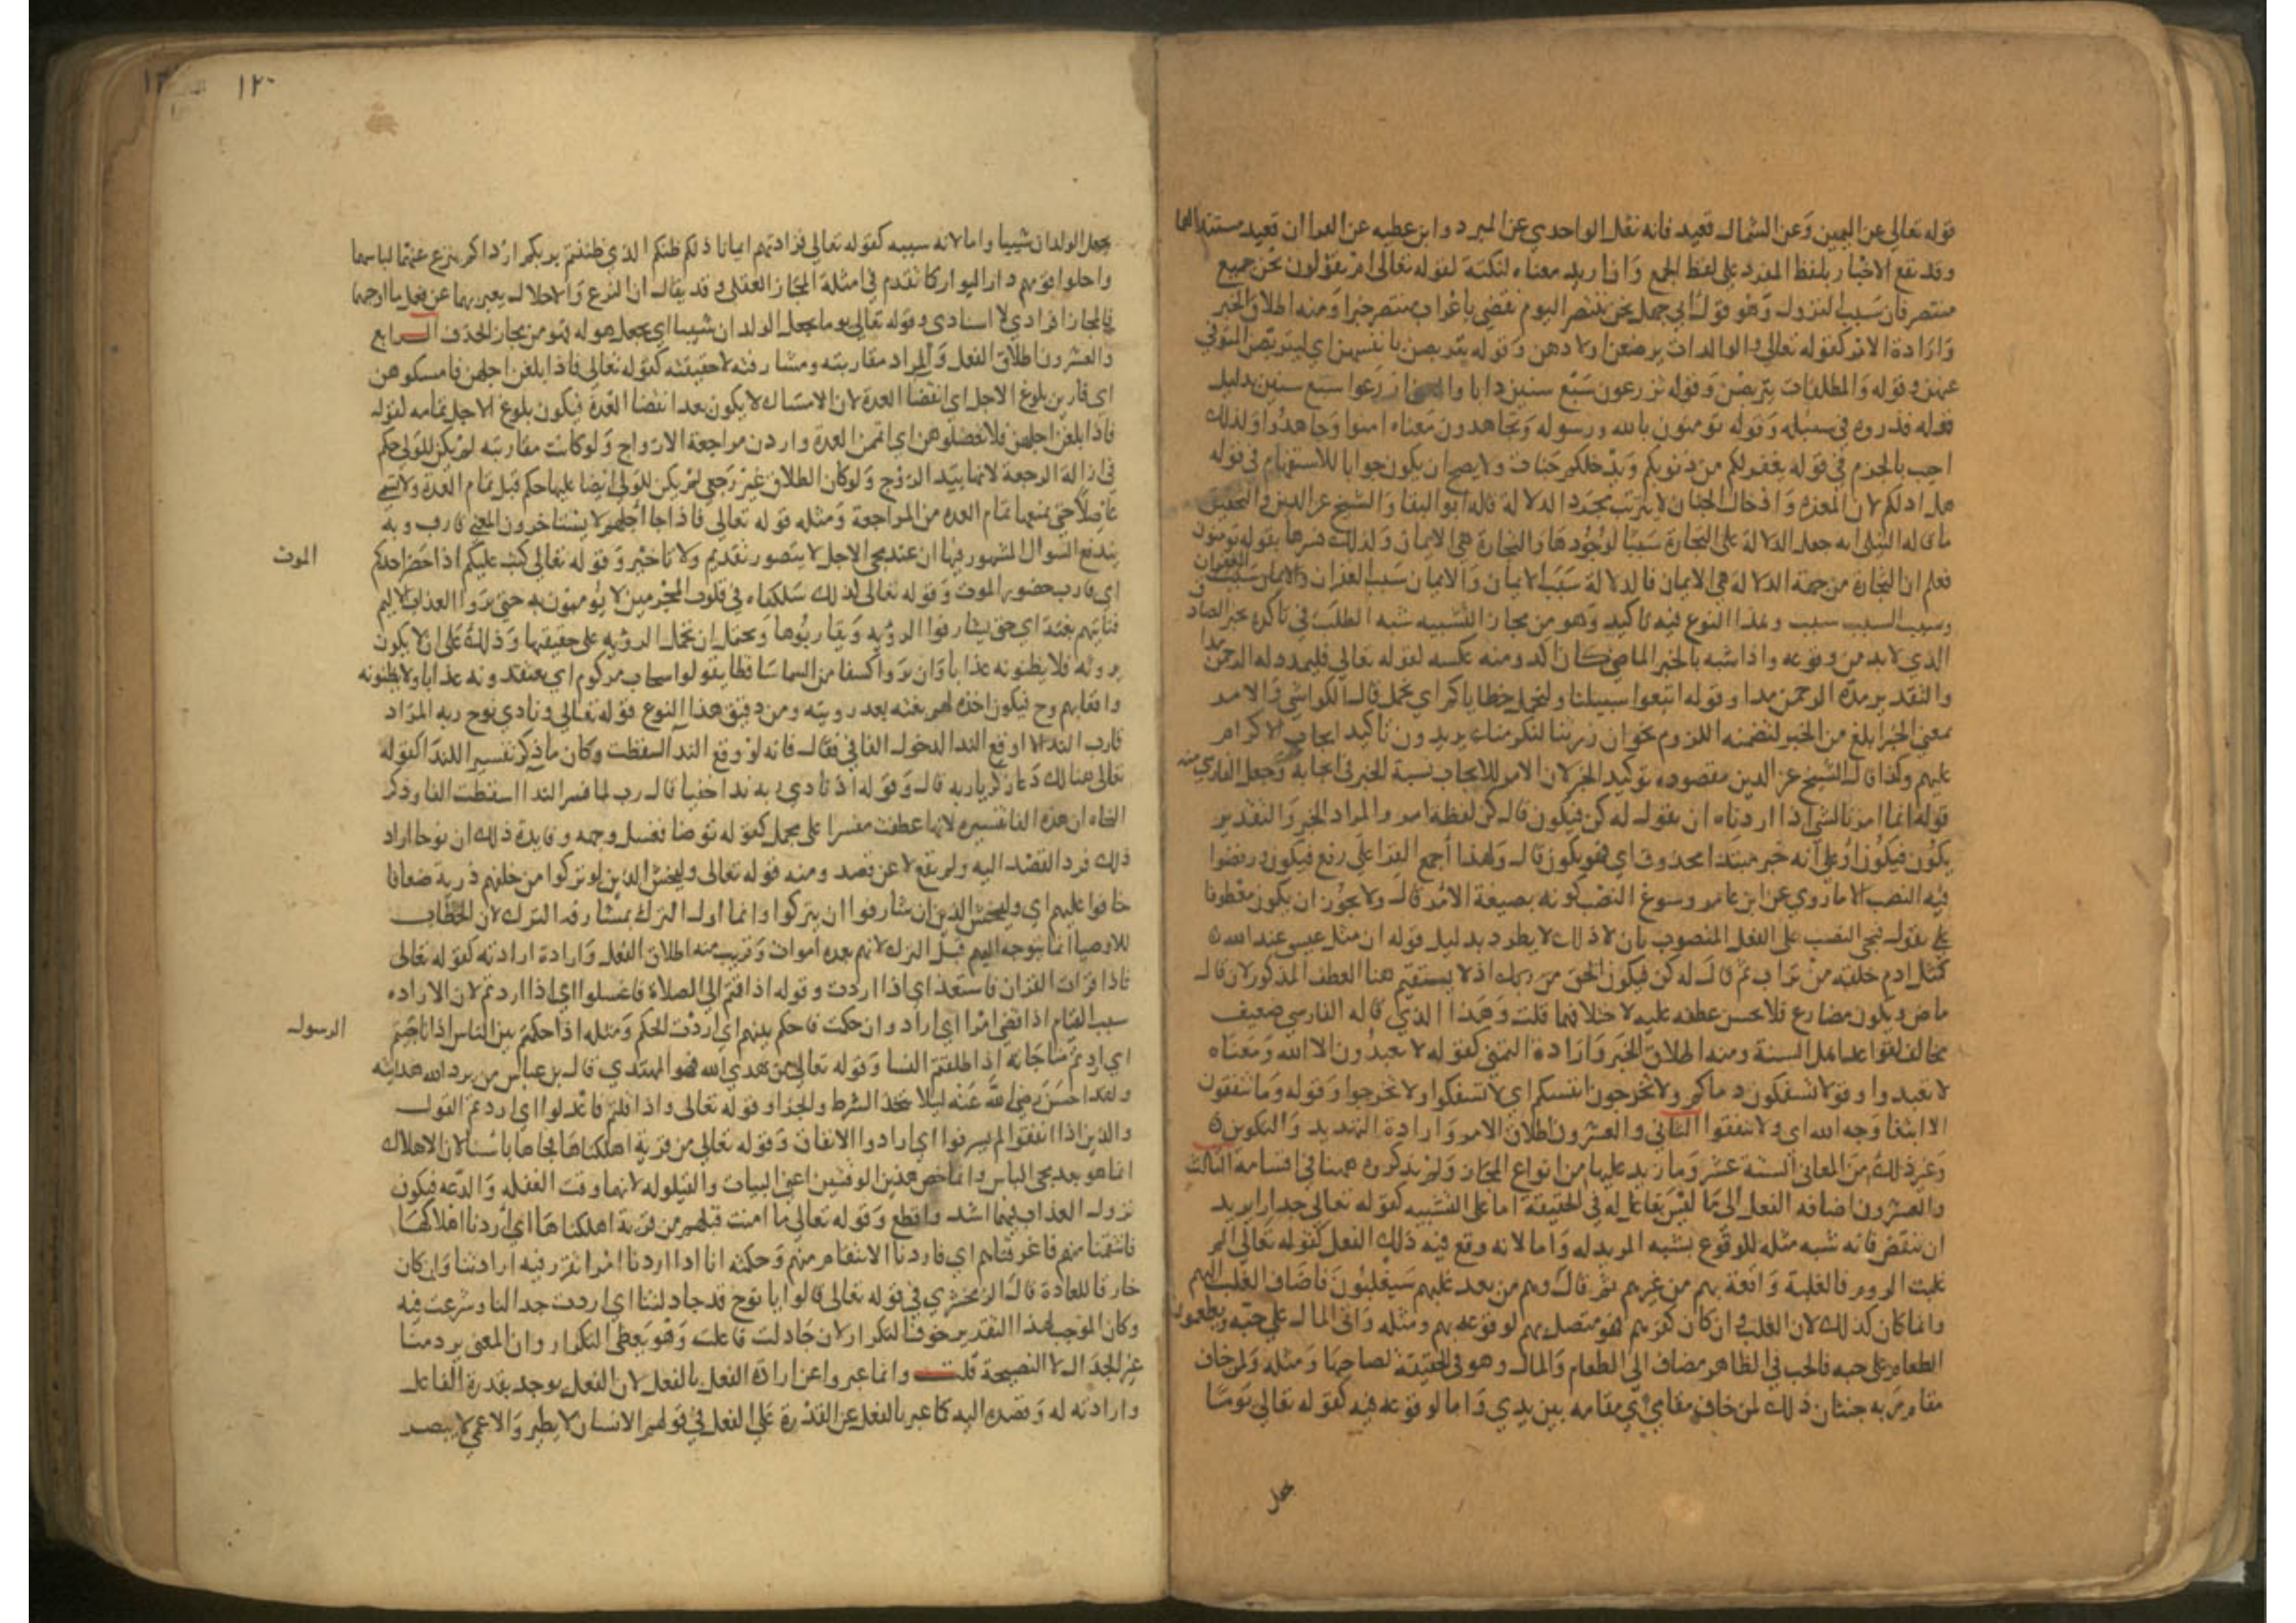 قوله تعالى عن اليمين وعن الشمال قعيد فانه نقل الواحدي عن المبرد وابن عطيه عن الفرا ان قعيد مستند لهما
وقد تقع الاخبار بلفظ المفرد على لفظ الجمع وان اريد معناه لنكتة كقوله تعالى ام يقولون نحن جميع
منتصر فان سبب النزول وهو قول ابي جهل نحن ننتصر اليوم نقضي باعراب منتصر خبرا ومنه اطلاق الخبر
وارادة الامر كقوله تعالى والوالدات يرضعن اولادهن وقوله يتربصن بانفسهن اي ليتربص المتوفي
عنهن وقوله والمطلقات يتربصن وقوله تزرعون سبع سنين دابا والمعنى ازرعوا سبع سنين بدليل
قوله فذروه في سنبله وقوله تومنون بالله ورسوله وتجاهدون معناه امنوا وجاهدوا ولذلك
اجيب بالجزم في قوله يغفر لكم من ذنوبكم ويدخلكم جنات ولا يصح ان يكون جوابا للاستفهام في قوله
هل ادلكم لان المغفره وادخال الجنان لا يترتب بمجرد الدلالة قاله ابو البقا والشيخ عز الدين والتحقيق
ما قاله النيلي انه جعل الدلالة على التجارة سببا لوجودها والتجارة هي الايمان ولذلك فسرها بقوله تومنون
فعلم ان التجارة من جهة الدلالة هي الايمان فالدلالة سبب الايمان والايمان سبب الغفران
وسبب السبب سبب وهذا النوع فيه تاكيد وهو من مجاز التشبيه شبه الطلب في تاكده بخبر الصادق
الذي لابد من وقوعه واذا شبه بالخبر الماضي كان اكد ومنه عكسه كقوله تعالى فليمدد له الرحمن مدا
والتقدير مده الرحمن مدا وقوله اتبعوا سبيلنا ولنحمل خطاياكم اي نحمل قال الكواشي والامر
بمعنى الخبر ابلغ من الخبر لتضمنه اللزوم نحو ان زرتنا لنكرمناه يريدون تاكيد ايجاب الاكرام
عليهم وكذا قال الشيخ عز الدين مقصوده توكيد الخبر لان الامر للايجاب نسبة الخبر في ايجابه وجعل الفارسي منه
قوله انما امرنا لشي اذا اردناه ان نقول له كن فيكون قال كن لفظه امر والمراد الخبر والتقدير
يكون فيكون او على انه خبر مبتدا محذوف اي فهو يكون قال ولهذا اجمع القرا على رفع فيكون ورفضوا
فيه النصب الا ما روي عن ابن عامر وسوغ النصب كونه بصيغة الامر قال ولا يجوز ان يكون معطوفا
على نقول فيجي النصب على الفعل المنصوب بان لان ذلك لا يطرد بدليل قوله ان مثل عيسى عند الله
كمثل ادم خلقه من تراب ثم قال له كن فيكون الحق من ربك اذ لا يستقيم هنا العطف المذكور لان قال
ماض ويكون مضارع فلا يحسن عطفه عليه لاختلافهما قلت وهذا الذي قاله الفارسي ضعيف
مخالف لقواعد اهل السنة ومنه اطلاق الخبر وارادة النهي كقوله لا تعبدون الا الله ومعناه
لا تعبدوا وقوله لا تسفكون دماكم ولا تخرجون انفسكم اي لا تسفكوا ولا تخرجوا وقوله وما تنفقون
الا ابتغا وجه الله اي ولا تنفقوا الثاني والعشرون اطلاق الامر وارادة التهديد والتكوين
وغير ذلك من المعاني الستة عشر وما زيد عليها من انواع المجاز ولم يذكروه هنا في اقسامه الثالث
والعشرون اضافه الفعل الى ما ليس بفاعل له في الحقيقة اما على التشبيه كقوله تعالى جدارا يريد
ان ينقض فانه شبه ميله للوقوع بشبه المريد له واما لانه وقع فيه ذلك الفعل كقوله تعالى الم
غلبت الروم فالغلبة واقعة بهم من غيرهم ثم قال وهم من بعد غلبهم سيغلبون فاضاف الغلب اليهم
وانما كان كذلك لان الغلب وان كان لغيرهم فهو متصل بهم لوقوعه بهم ومثله واتى المال على حبه ويطعمون
الطعام على حبه فالحب في الظاهر مضاف الى الطعام والمال وهو في الحقيقة لصاحبها ومثله ولمن خاف
مقام ربه جنتان ذلك لمن خاف مقامي اي مقامه بين يدي واما لوقوعه فيه كقوله تعالى يوما
يجعل
١٢٠
يجعل الولدان شيبا واما لانه سببه كقوله تعالى فزادتهم ايمانا ذلكم ظنكم الذي ظننتم بربكم ارداكم ينزع عنهما لباسهما
واحلوا قومهم دار البوار كما تقدم في امثلة المجاز العقلي وقد يقال ان النزع والاحلال يعبر بهما عن فعل ما اوجبهما
فالمجاز افرادي لا اسنادي وقوله تعالى يوما يجعل الولدان شيبا اي يجعل هوله فهو من مجاز الحذف الرابع
والعشرون اطلاق الفعل والمراد مقاربته ومشارفته لا حقيقته كقوله تعالى فاذا بلغن اجلهن فامسكوهن
اي قاربن بلوغ الاجل اي انقضا العدة لان الامساك لا يكون بعد انقضا العدة فيكون بلوغ الاجل تمامه كقوله
فاذا بلغن اجلهن فلا تعضلوهن اي اتممن العدة واردن مراجعة الازواج ولو كانت مقاربته لم يكن للولي حكم
في ازالة الرجعة لانها بيد الزوج ولو كان الطلاق غير رجعي لم يكن للولي ايضا عليها حكم قبل تمام العدة ولا يسمى
عاضلا حتى يمنعها تمام العده من المراجعة ومثله قوله تعالى فاذا جا اجلهم لا يستاخرون المعنى قارب وبه
يندفع السوال المشهور فيها ان عند مجي الاجل لا يتصور تقديم ولا تاخير وقوله تعالى كتب عليكم اذا حضر احدكم
الموت
اي قارب حضور الموت وقوله تعالى كذلك سلكناه في قلوب المجرمين لا يومنون به حتى يروا العذاب الاليم
فياتيهم بغتة اي حتى يشارفوا الرويه ويقاربوها ويحتمل ان تحمل الرويه على حقيقتها وذلك على ان لا يكون
يرونه فلا يظنونه عذابا وان يروا كسفا من السما ساقطا يقولوا سحاب مركوم اي يعتقدونه عذابا ولا يظنونه
واقعا بهم وح فيكون اخذه لهم بغته بعد رويته ومن دقيق هذا النوع قوله تعالى ونادى نوح ربه المراد
قارب الندا لا اوقع الندا لدخول الفا في فقال فانه لو وقع الندا لسقطت وكان ما ذكر تفسيرا للندا كقوله
تعالى هنالك دعا زكريا ربه قال وقوله اذ نادى ربه ندا خفيا قال رب لما فسر الندا اسقطت الفا وذكر
النحاه ان هذه الفا تفسيريه لانها عطفت مفسرا على مجمل كقوله توضا فغسل وجهه وفايدة ذلك ان نوحا اراد
ذلك فرد القصد اليه ولم يقع لا عن قصد ومنه قوله تعالى وليخش الذين لو تركوا من خلفهم ذرية ضعافا
خافوا عليهم اي وليخش الذين ان شارفوا ان يتركوا وانما اول الترك بمشارفه الترك لان الخطاب
للاوصيا انما يتوجه اليهم قبل الترك لانهم بعده اموات وقريب منه اطلاق الفعل وارادة ارادته كقوله تعالى
فاذا قرات القران فاستعذ اي اذا اردت وقوله اذا قمتم الى الصلاة فاغسلوا اي اذا اردتم لان الاراده
سبب القيام اذا قضى امرا اي اراد وان حكمت فاحكم بينهم اي اردت الحكم ومثله اذا حكمتم بين الناس اذا ناجيتم
الرسول
اي اردتم مناجاته اذا طلقتم النسا وقوله تعالى من يهدي الله فهو المهتدي قال بن عباس من يرد الله هدايته
ولقد احسن رضي الله عنه ليلا يتحد الشرط والجزا وقوله تعالى واذا قلتم فاعدلوا اي اردتم القول
والذين اذا انفقوا لم يسرفوا اي ارادوا الانفاق وقوله تعالى من قرية اهلكناها فجاها باسنا لان الاهلاك
انما هو بعد مجي الباس وانما خص هذين الوقتين اعني البيات والقيلوله لانهما وقت الغفله والدعه فيكون
نزول العذاب فيهما اشد وافظع وقوله تعالى ما امنت قبلهم من قرية اهلكناها اي اردنا اهلاكها
فانتقمنا منهم فاغرقناهم اي فاردنا الانتقام منهم وحكمته انا اذا اردنا امرا نقرر فيه ارادتنا وان كان
خارقا للعادة قال الزمخشري في قوله تعالى قالوا يا نوح قد جادلتنا اي اردت جدالنا وشرعت فيه
وكان الموجب لهذا التقدير خوف التكرار لان جادلت فاعلت وهو يعطي التكرار وان المعنى يرد منا
غير الجدال لا النصيحة قلت وانما عبروا عن ارادة الفعل بالفعل لان الفعل يوجد بقدرة الفاعل
وارادته له وقصده اليه كما عبر بالفعل عن القدرة على الفعل في قولهم الانسان لا يطير والاعمى لا يبصر